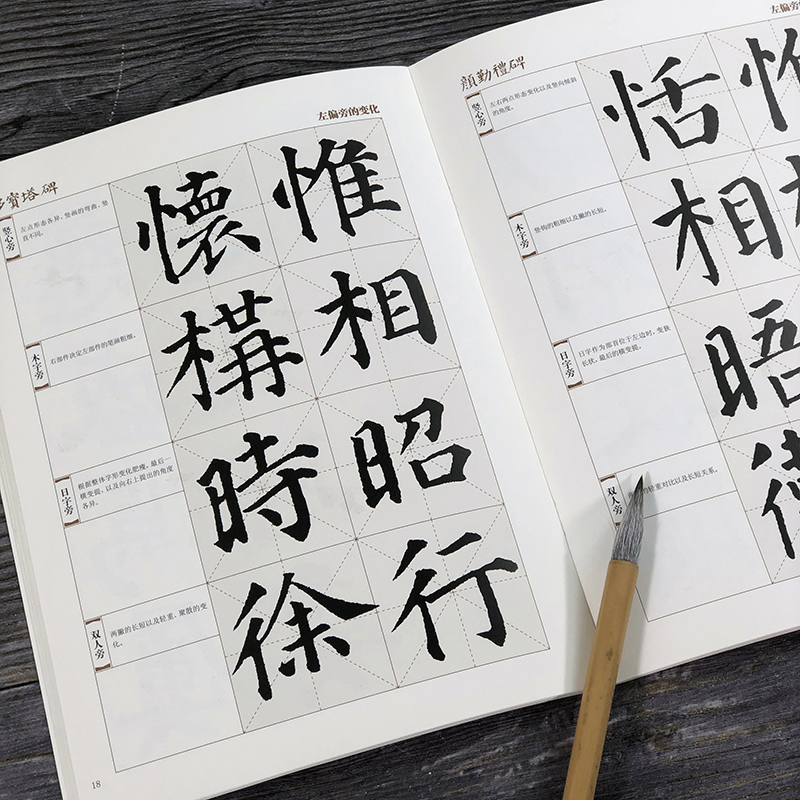 左偏旁的变化
寶塔碑
竖心旁
左点形态各异，竖画的弯曲、竖
直不同。
懷 惟
木字旁
右部件决定左部件的笔画粗细。
構 相
日字旁
根据整体字形变化肥瘦，最后一
横变提，以及向右上提出的角度
各异。
時 昭
双人旁
两撇的长短以及轻重、聚散的变
化。
徐 行
18
左偏旁的
顔勤禮碑
竖心旁
左右两点形态变化以及竖向倾斜
的角度。
恬 惟
木字旁
竖钩的粗细以及撇的长短。
相
日字旁
日字作为部首位于左边时，变狭
长状，最后的横变提。
晤
双人旁
的轻重对比以及长短关系。